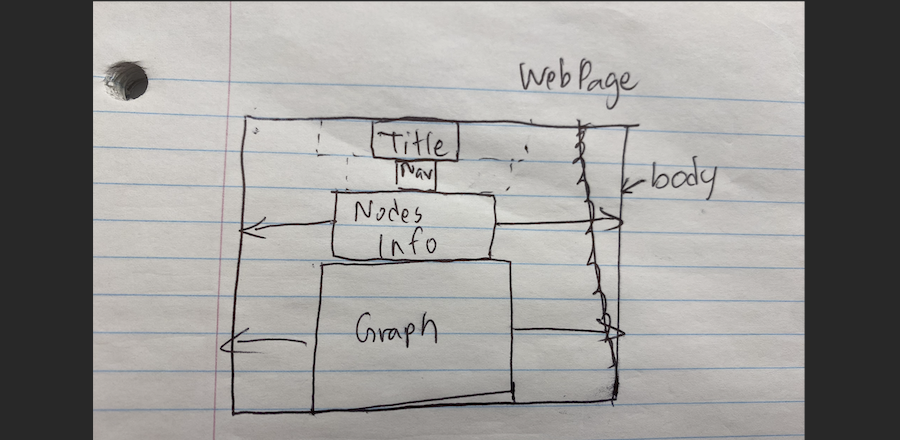 WebPage
Title
Nav
body
Nodes
Info
Graph